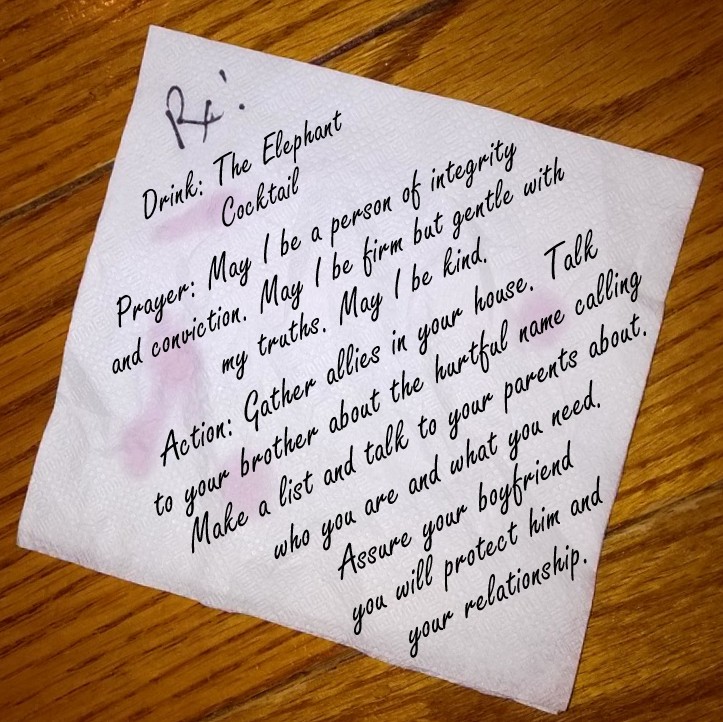 Rx!
Drink: The Elephant
Cocktail
Prayer: May I be a person of integrity
and conviction. May I be firm but gentle with
my truths. May I be kind.
Action: Gather allies in your house. Talk
to your brother about the hurtful name calling
Make a list and talk to your parents about.
who you are and what you need.
Assure your boyfriend
you will protect him and
your relationship.